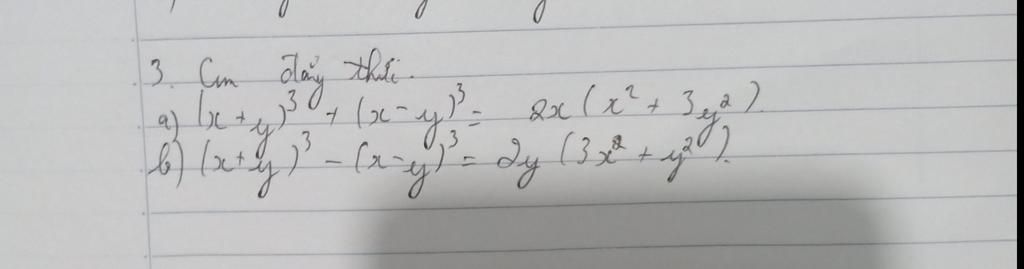 3. Cm đẳng thức.
a) (x + y)³ + (x - y)³ = 2x (x² + 3y²)
b) (x + y)³ - (x - y)³ = 2y (3x² + y²).